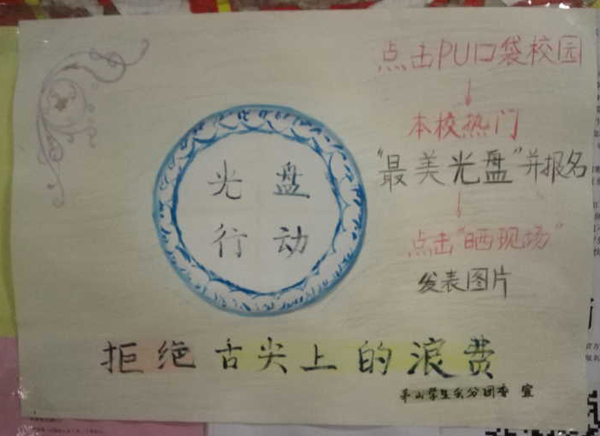 光盘
行动
点击PU口袋校园
↓
本校热门
"最美光盘"并报名
↓
点击"晒现场"
发表图片
拒绝舌尖上的浪费
茅山学生会分团委 宣